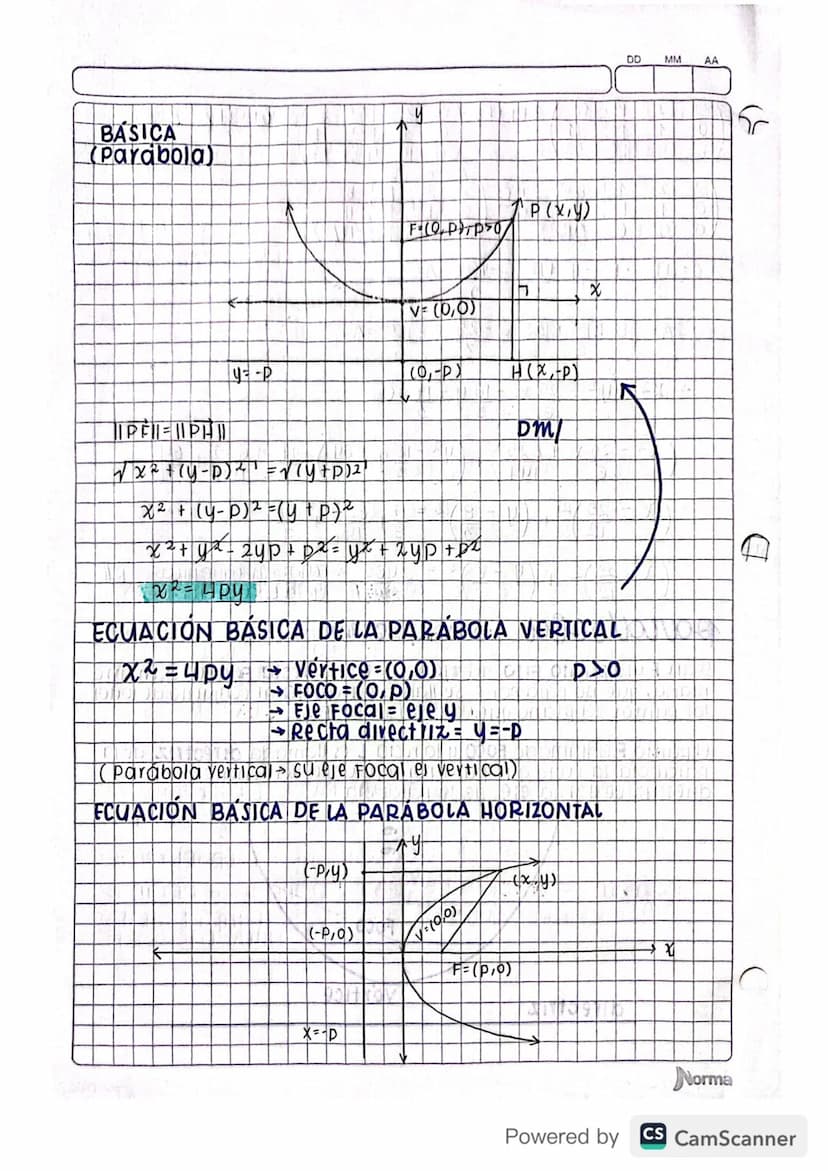 DD MM AA
BÁSICA
(Parábola)
y
P (x,y)
F=(0,P),P>0
x
V= (0,0)
y= -P
(0,-P)
H(x,-P)
||PF||=||PH||
DM/
√x²+(y-P)² = √(y+P)²
x² + (y-P)² =(y+P)²
x²+y²-2yp+p²= y²+2yp+p²
x²=4py
ECUACIÓN BÁSICA DE LA PARÁBOLA VERTICAL
x²=4py → Vértice=(0,0) P>0
→ Foco=(0,P)
→ Eje Focal= eje y
→ Recta directriz= y=-P
(Parábola vertical→ su eje Focal es vertical)
ECUACIÓN BÁSICA DE LA PARÁBOLA HORIZONTAL
y
(-P,y)
(x,y)
V=(0,0)
(-P,0)
x
F=(P,0)
x=-P
Norma
Powered by CS CamScanner